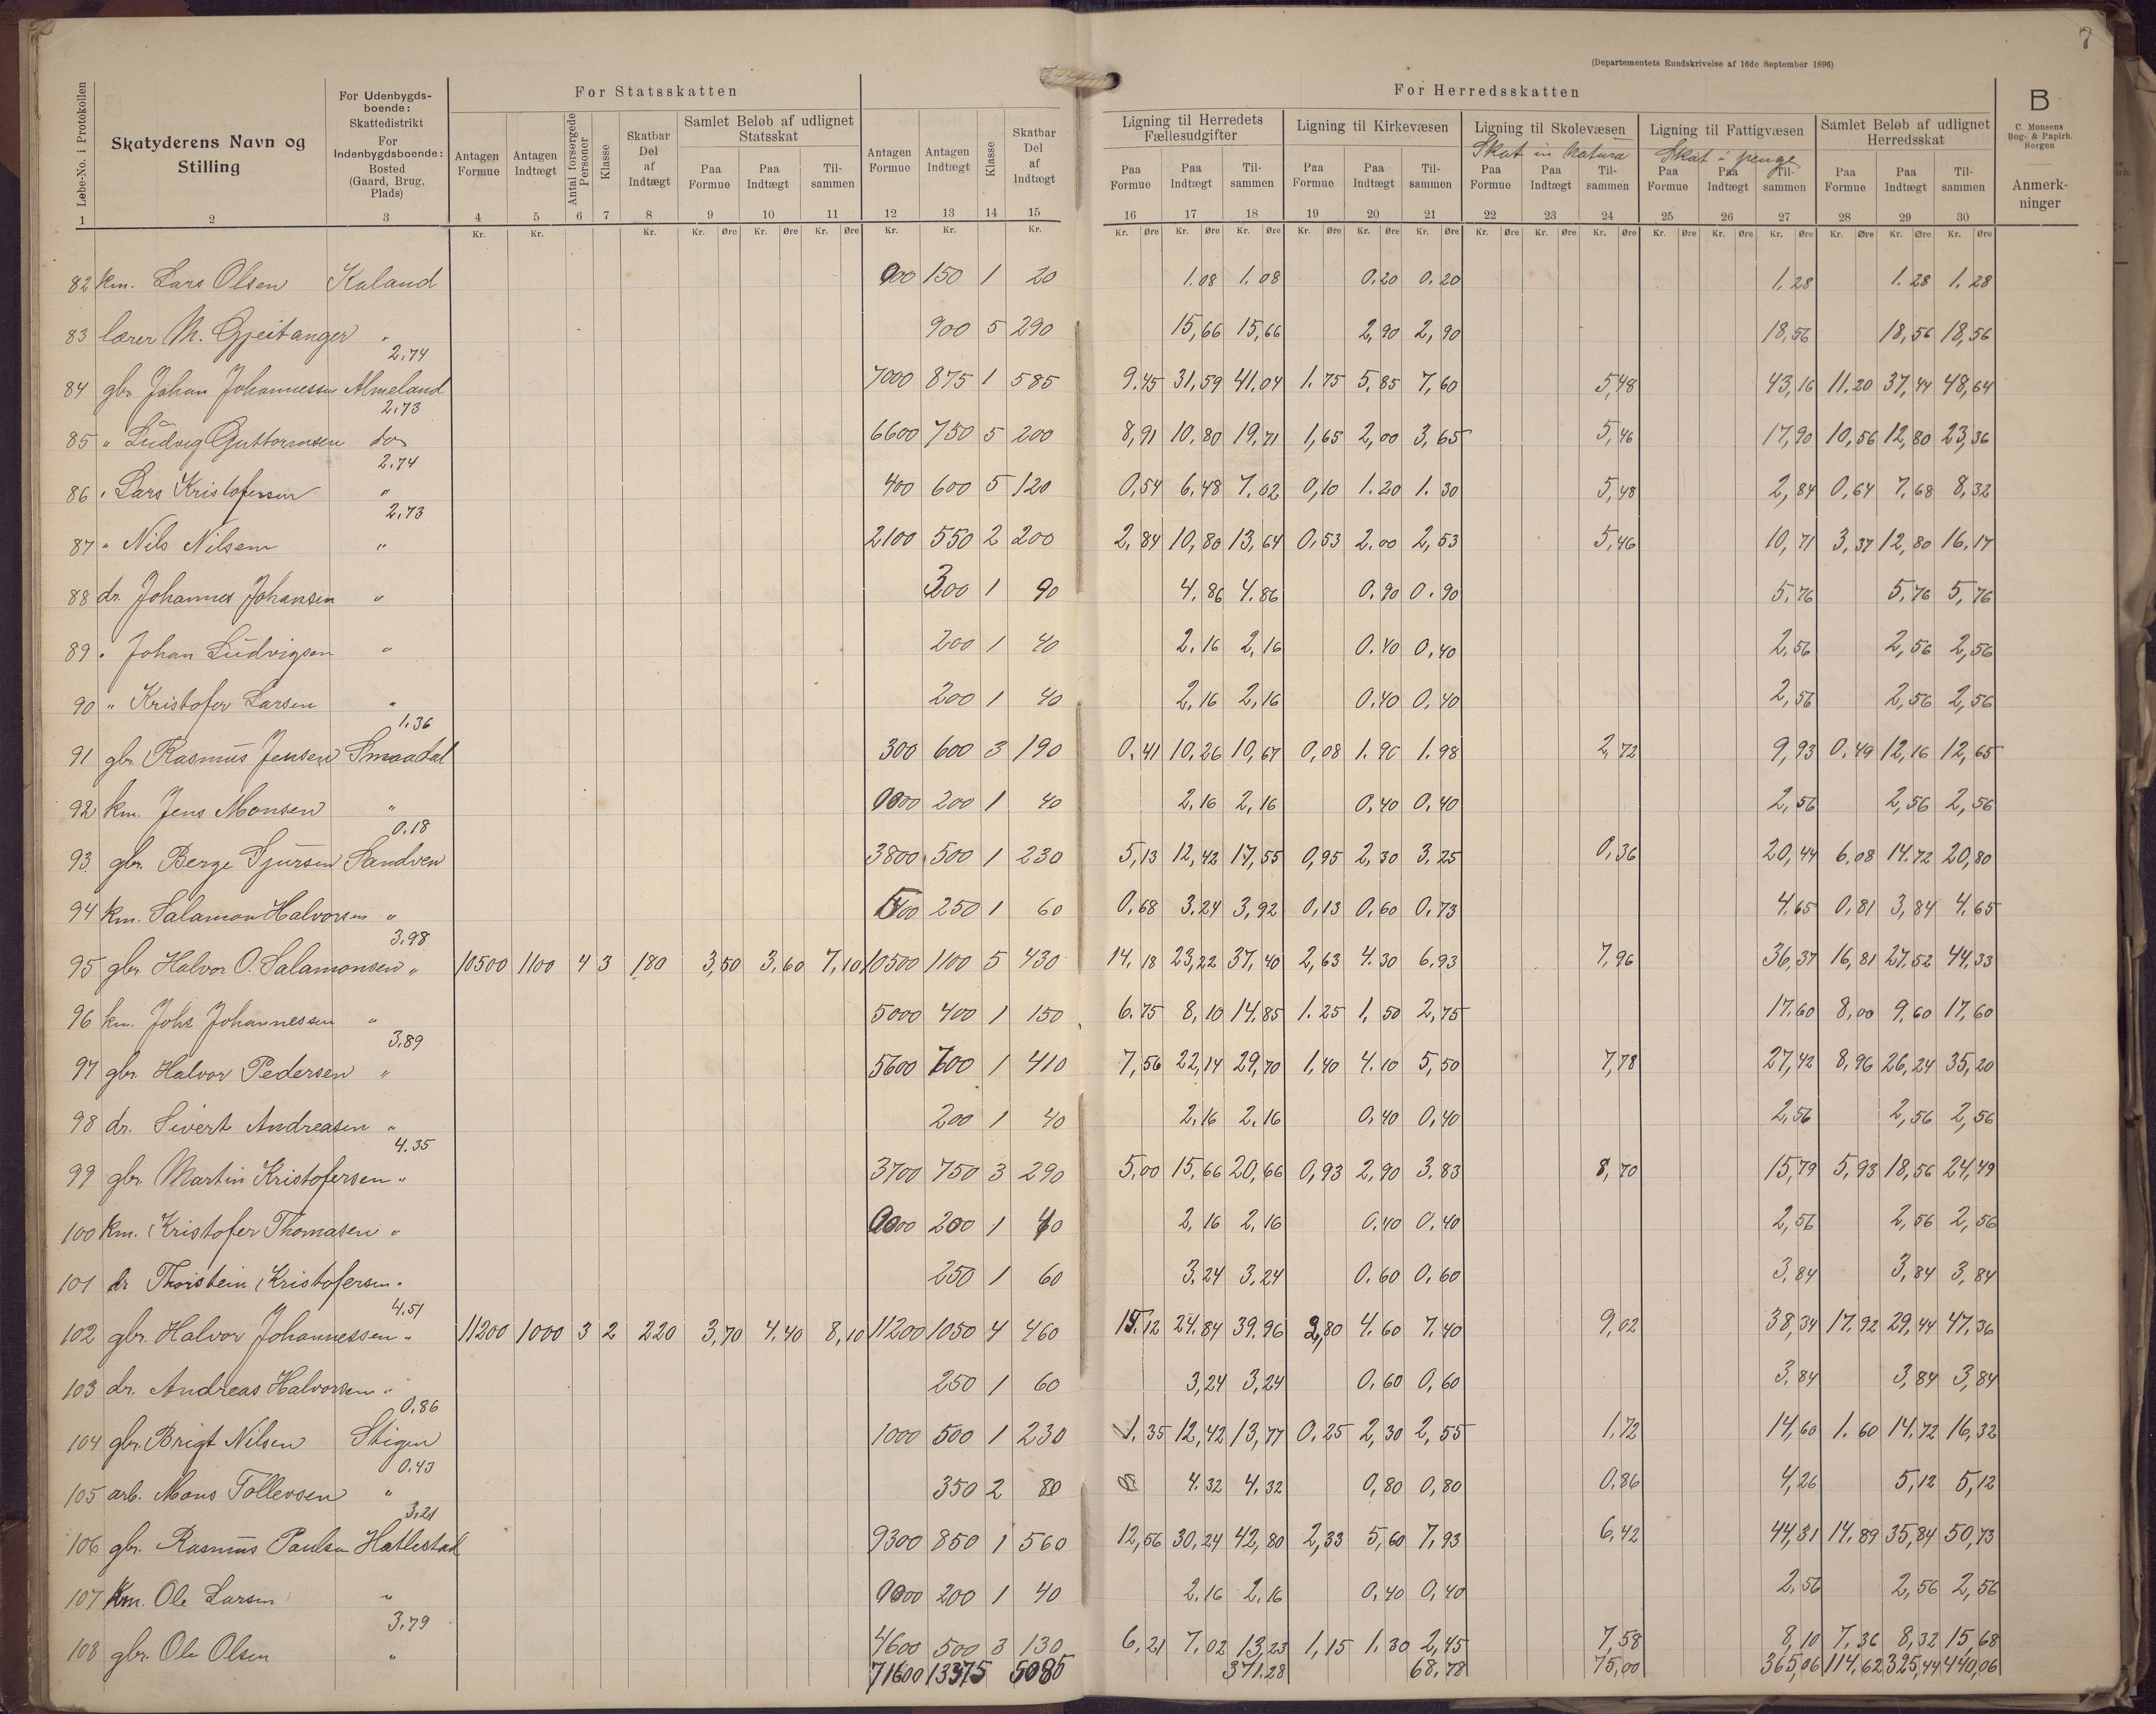 7
(Departementets Rundskrivelse af 16de September 1896)
For Statsskatten
For Herredsskatten
B
C. Monsens Bog- & Papirh. Bergen
Løbe-No. i Protokollen | Skatyderens Navn og Stilling | For Udenbygdsboende: Skattedistrikt For Indenbygdsboende: Bosted (Gaard, Brug, Plads) | Antagen Formue | Antagen Indtægt | Antal forsørgede Personer | Klasse | Skatbar Del af Indtægt | Samlet Beløb af udlignet Statsskat | Antagen Formue | Antagen Indtægt | Klasse | Skatbar Del af Indtægt | Ligning til Herredets Fællesudgifter | Ligning til Kirkevæsen | Ligning til Skolevæsen | Ligning til Fattigvæsen | Samlet Beløb af udlignet Herredsskat | Anmerkninger
Skat in natura | Skat i penge
Paa Formue | Paa Indtægt | Tilsammen | Paa Formue | Paa Indtægt | Tilsammen | Paa Formue | Paa Indtægt | Tilsammen | Paa Formue | Paa Indtægt | Tilsammen | Paa Formue | Paa Indtægt | Tilsammen | Paa Formue | Paa Indtægt | Tilsammen
1 2 3 4 5 6 7 8 9 10 11 12 13 14 15 16 17 18 19 20 21 22 23 24 25 26 27 28 29 30
Kr. Kr. Kr. Kr. Øre Kr. Øre Kr. Øre Kr. Kr. Kr. Kr. Øre Kr. Øre Kr. Øre Kr. Øre Kr. Øre Kr. Øre Kr. Øre Kr. Øre Kr. Øre Kr. Øre Kr. Øre Kr. Øre Kr. Øre Kr. Øre Kr. Øre
82 km. Lars Olsen Kaland 900 150 1 20 1.08 1.08 0.20 0.20 1.28 1.28 1.28
83 lærer M. Gjeitanger " 900 5 290 15,66 15,66 2,90 2,90 18,56 18,56 18,56
2.74
84 gbr. Johan Johannessen Almeland 7000 875 1 585 9.45 31,59 41.04 1.75 5,85 7,60 5,48 43,16 11.20 37,44 48,64
2.73
85 " Ludvig Guttormsen do 6600 750 5 200 8,91 10,80 19,71 1,65 2,00 3,65 5,46 17,90 10,56 12,80 23,36
2.74
86 " Lars Kristofersen " 400 600 5 120 0,54 6,48 7.02 0,10 1.20 1.30 5,48 2,84 0,64 7,68 8,32
2.73
87 " Nils Nilsen " 2100 550 2 200 2,84 10,80 13,64 0,53 2.00 2,53 5,46 10,71 3,37 12,80 16.17
88 dr. Johannes Johansen " 300 1 90 4.86 4.86 0.90 0.90 5.76 5.76 5,76
89 " Johan Ludvigsen " 200 1 40 2.16 2,16 0.40 0,40 2.56 2,56 2,56
90 " Kristofer Larsen " 200 1 40 2,16 2,16 0.40 0,40 2,56 2,56 2,56
1.36
91 gbr. Rasmus Jensen Smaadal 300 600 3 190 0.41 10,26 10,67 0,08 1.90 1.98 2,72 9,93 0.49 12,16 12,65
92 km. Jens Monsen " 0000 200 1 40 2,16 2,16 0,40 0,40 2,56 2,56 2,56
0.18
93 gbr. Berge Sjursen Sandven 3800 500 1 230 5,13 12,42 17,55 0,95 2,30 3.25 0,36 20,44 6,08 14.72 20,80
94 km. Salamon Halvorsen " 500 250 1 60 0.68 3.24 3,92 0,13 0,60 0.73 4.65 0,81 3,84 4.65
3.98
95 gbr. Halvor O. Salamonsen " 10500 1100 4 3 180 3,50 3.60 7,10 10500 1100 5 430 14.18 23,22 37,40 2,63 4.30 6,93 7,96 36,37 16,81 27.52 44,33
96 km. Johs Johannessen " 5000 400 1 150 6.75 8,10 14.85 1.25 1,50 2,75 17.60 8,00 9,60 17,60
3.89
97 gbr. Halvor Pedersen " 5600 700 1 410 7,56 22,14 29,70 1,40 4.10 5,50 7,78 27,42 8,96 26,24 35,20
98 dr. Sivert Andreasen " 200 1 40 2,16 2.16 0,40 0,40 2.56 2,56 2,56
4.35
99 gbr. Martin Kristofersen " 3700 750 3 290 5,00 15,66 20,66 0,93 2,90 3.83 8,70 15,79 5,93 18,56 24,49
100 km. Kristofer Thomasen " 0000 200 1 40 2,16 2.16 0,40 0.40 2,56 2,56 2,56
101 dr Thorstein Kristofersen " 250 1 60 3,24 3.24 0,60 0,60 3,84 3,84 3,84
4.51
102 gbr. Halvor Johannessen " 11200 1000 3 2 220 3,70 4.40 8,10 11200 1050 4 460 15.12 24,84 39.96 2,80 4.60 7.40 9,02 38,34 17.92 29,44 47,36
103 dr. Andreas Halvorsen " 250 1 60 3,24 3,24 0.60 0,60 3.84 3,84 3,84
0.86
104 gbr. Brigt Nilsen Stigen 1000 500 1 230 1.35 12,42 13,77 0.25 2,30 2,55 1.72 14,60 1.60 14.72 16,32
0.43
105 arb. Mons Tollevsen " 350 2 80 4.32 4.32 0,80 0,80 0.86 4,26 5,12 5,12
3.21
106 gbr. Rasmus Paulsen Hatlestad 9300 850 1 560 12,56 30,24 42,80 2,33 5,60 7,93 6,42 44,31 14.89 35,84 50,73
107 Km. Ole Larsen " 0000 200 1 40 2.16 2.16 0,40 0,40 2,56 2,56 2,56
3.79
108 gbr. Ole Olsen " 4600 500 3 130 6,21 7.02 13,23 1,15 1.30 2,45 7,58 8,10 7,36 8,32 15,68
71600 13375 5085 371.28 68,78 75,00 365,06 114,62 325,44 440,06